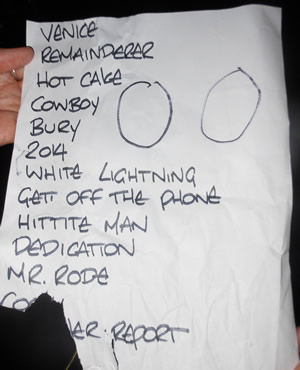 VENICE
REMAINDERER
HOT CAKE
COWBOY
BURY
2014
WHITE LIGHTNING
GETT OFF THE PHONE
HITTITE MAN
DEDICATION
MR. RODE
REPORT